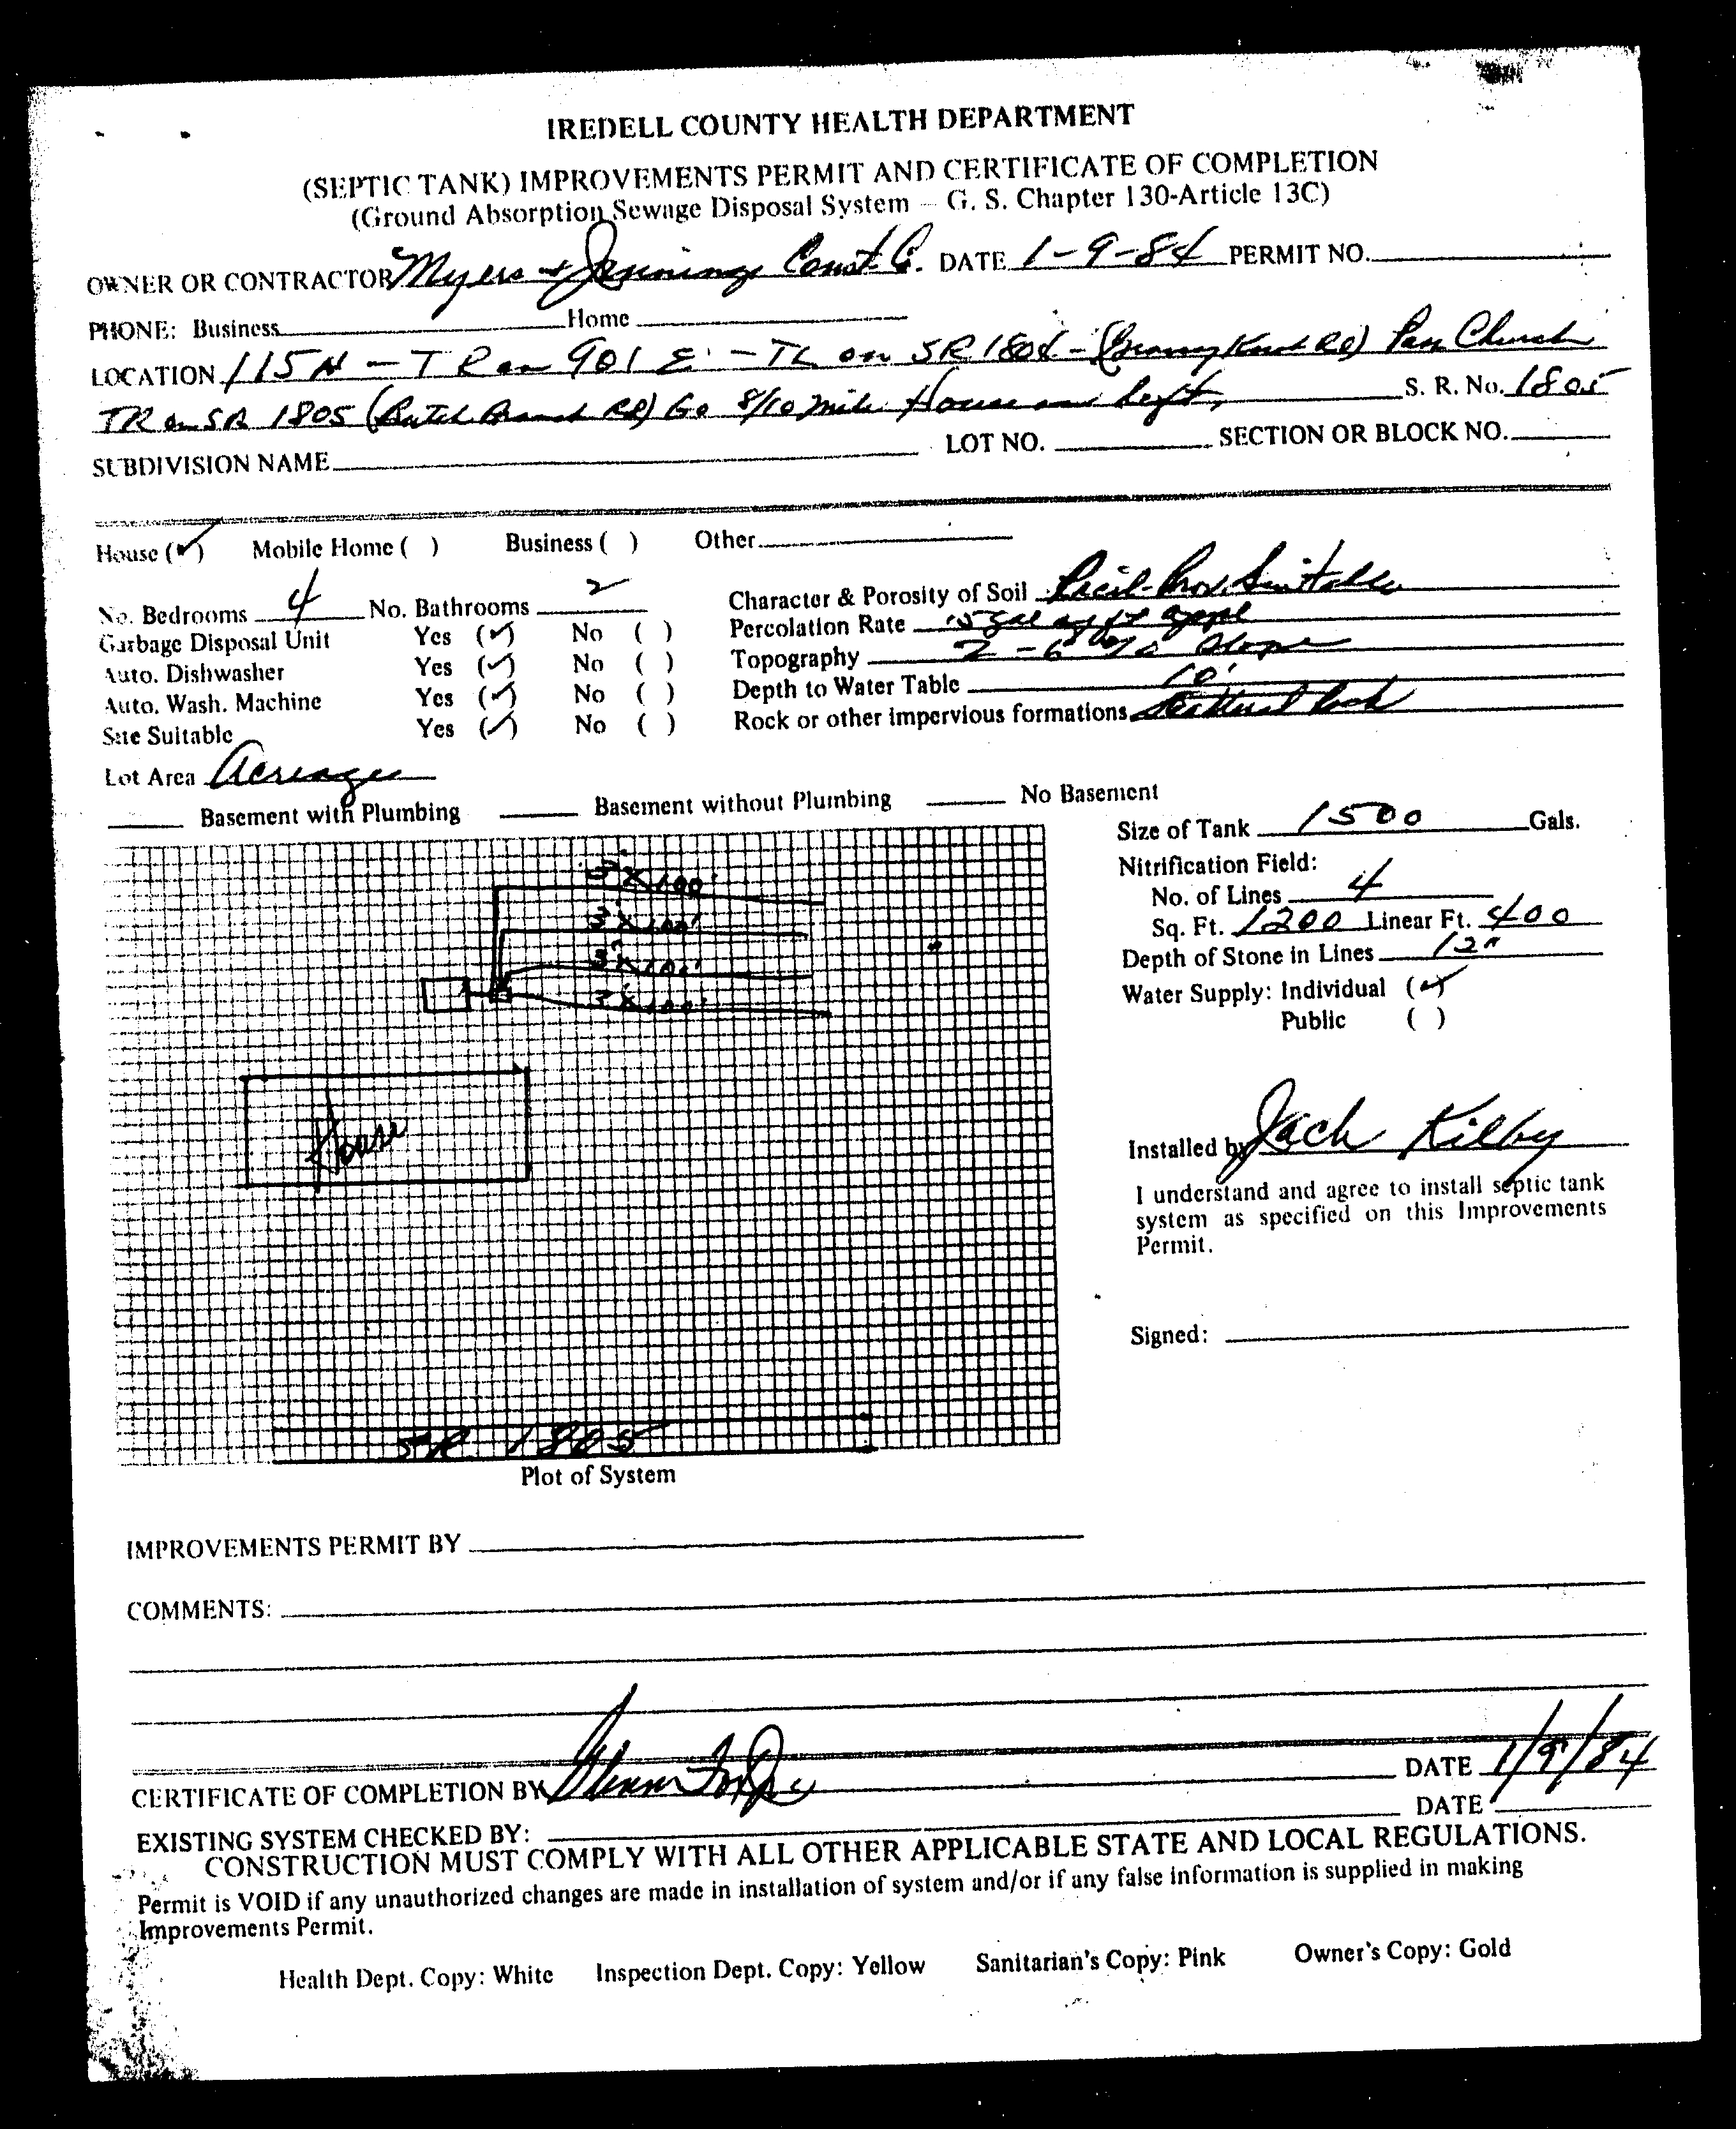 IREDELL COUNTY HEALTH DEPARTMENT
(SEPTIC TANK) IMPROVEMENTS PERMIT AND CERTIFICATE OF COMPLETION
(Ground Absorption Sewage Disposal System – G. S. Chapter 130-Article 13C)
OWNER OR CONTRACTOR Myers & Jennings Const. Co. DATE 1-9-84 PERMIT NO.
PHONE: Business Home
LOCATION 115 N – TR on 901 E – TL on SR 1804 - ( Rd) Pass Church
TR on SR 1805 ( Branch Rd) Go 8/10 mile House on left, S. R. No. 1805
SUBDIVISION NAME LOT NO. SECTION OR BLOCK NO.
House (✓) Mobile Home ( ) Business ( ) Other
No. Bedrooms 4 No. Bathrooms 2 Character & Porosity of Soil Cecil-Prov. Suitable
Garbage Disposal Unit Yes (✓) No ( ) Percolation Rate
Auto. Dishwasher Yes (✓) No ( ) Topography 2-6% slope
Auto. Wash. Machine Yes (✓) No ( ) Depth to Water Table 10'
Site Suitable Yes (✓) No ( ) Rock or other impervious formations Rock
Lot Area Acreage
Basement with Plumbing Basement without Plumbing No Basement
Size of Tank 1500 Gals.
Nitrification Field:
No. of Lines 4
Sq. Ft. 1200 Linear Ft. 400
Depth of Stone in Lines 12"
Water Supply: Individual (✓)
Public ( )
3' X 100'
3' X 100'
3' X 100'
3' X 100'
House
SR 1805
Plot of System
Installed by Jack Kilby
I understand and agree to install septic tank
system as specified on this Improvements
Permit.
Signed:
IMPROVEMENTS PERMIT BY
COMMENTS:
CERTIFICATE OF COMPLETION BY DATE 1/9/84
EXISTING SYSTEM CHECKED BY: DATE
CONSTRUCTION MUST COMPLY WITH ALL OTHER APPLICABLE STATE AND LOCAL REGULATIONS.
Permit is VOID if any unauthorized changes are made in installation of system and/or if any false information is supplied in making
Improvements Permit.
Health Dept. Copy: White Inspection Dept. Copy: Yellow Sanitarian's Copy: Pink Owner's Copy: Gold